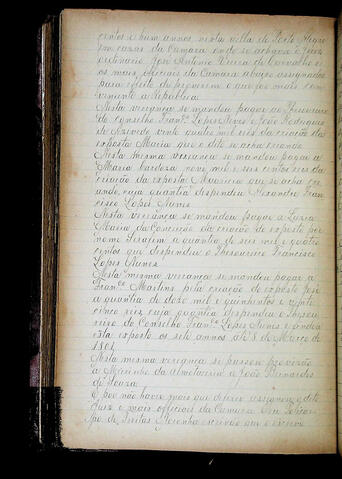 centos e hum annos, nesta villa de Porto Alegre
em cazas da Camara onde se achava o Juiz
ordinario José Antonio Vieira de Carvalho e
os mais officiaes da Camara abaixo assignados
para effeito de proverem o que foi mais com
veniente a Republica.
Nesta vereança se mandou pagar ao Thesoureiro
do Conselho Fran.co Lopes Nunes a João Rodrigues
de Azevedo vinte quatro mil reis da criação da
exposta Maria que o dito se acha creando
Nesta mesma vereança se mandou pagar a
Maria Cardoza nove mil e seis centos reis da
criação da exposta Mauricia que se acha cre
ando, cuja quantia despendeu Alexandre Fran
cisco Lopes Nunes.
Nesta vereança se mandou pagar a Luzia
Maria da Conceição da criação do exposto por
nome Serafim a quantia de seis mil e quatro
centos que despendeu o Thesoureiro Francisco
Lopes Nunes.
Nesta mesma vereança se mandou pagar a
Fran.co Martins pela criação do exposto José
a quantia de doze mil e quinhentos e vinte
cinco reis cuja quantia despendeu o Thesou
reiro do Conselho Fran.co Lopes Nunes e
esta exposto os sete annos até 8 de Março de
1801.
Nesta mesma vereança se passou provizão
a Meirinho da almotaceria a João Bernardes
de Souza.
E por não haver mais que deferir assignou o dito
Juiz e mais officiaes da Camara Eu
de Freitas escrivão que o escrevi